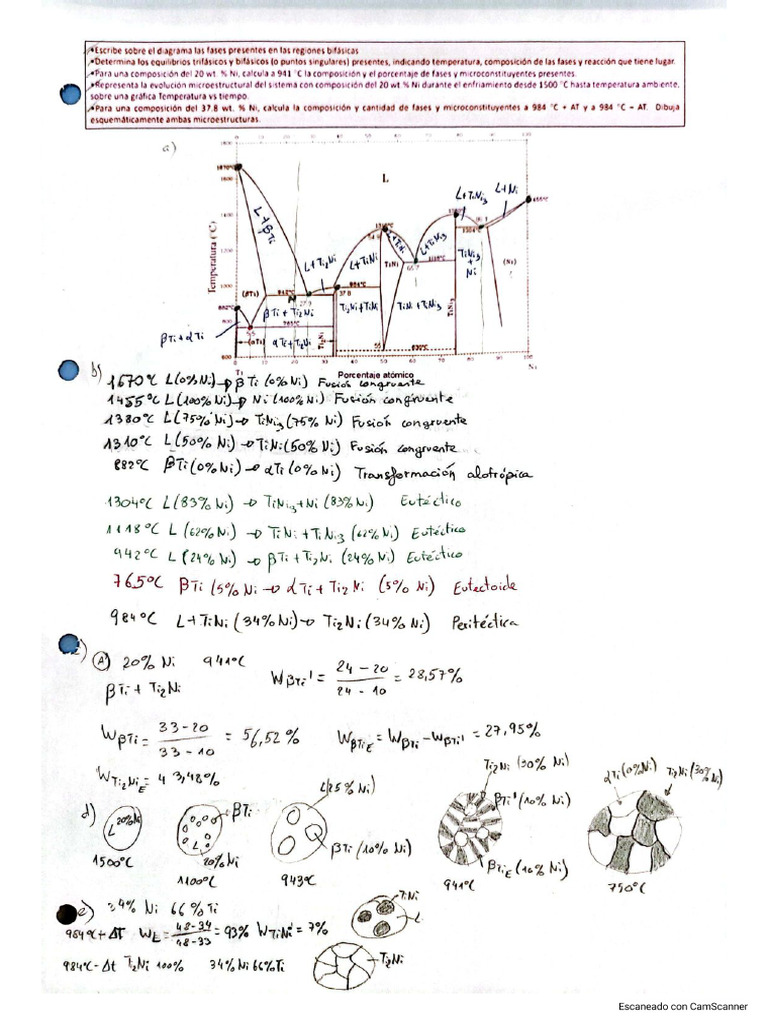 •Escribe sobre el diagrama las fases presentes en las regiones bifásicas
•Determina los equilibrios trifásicos y bifásicos (o puntos singulares) presentes, indicando temperatura, composición de las fases y reacción que tiene lugar.
•Para una composición del 20 wt. % Ni, calcula a 941 °C la composición y el porcentaje de fases y microconstituyentes presentes.
•Representa la evolución microestructural del sistema con composición del 20 wt.% Ni durante el enfriamiento desde 1500 °C hasta temperatura ambiente,
sobre una gráfica Temperatura vs tiempo.
•Para una composición del 37.8 wt. % Ni, calcula la composición y cantidad de fases y microconstituyentes a 984 °C + AT y a 984 °C – AT. Dibuja
esquemáticamente ambas microestructuras.
a)
Temperatura (°C)
1670°C
L
L+βTi
L+Ti2Ni
L+TiNi
L+TiNi
L+TiNi3
L+TiNi3
L+Ni
TiNi3
+
Ni
(Ni)
1304°C
1118°C
984°C
942°C
882°C
765°C
630°C
37.8
(βTi)
βTi + Ti2Ni
Ti2Ni+TiNi
TiNi + TiNi3
TiNi
TiNi3
Ti2Ni
βTi+αTi
(αTi)
αTi+Ti2Ni
5.5
55
0 10 20 30 40 50 60 70 80 90 100
Ti Porcentaje atómico Ni
b) 1670°C L(0%Ni)→βTi (0%Ni) Fusión congruente
1455°C L(100%Ni)→ Ni (100%Ni) Fusión congruente
1380°C L(75%Ni)→TiNi3(75%Ni) Fusión congruente
1310°C L(50%Ni)→TiNi(50%Ni) Fusión congruente
882°C βTi(0%Ni)→αTi(0%Ni) Transformación alotrópica
1304°C L(83%Ni) → TiNi3+Ni (83%Ni) Eutéctico
1118°C L(62%Ni) → TiNi+TiNi3 (62%Ni) Eutéctico
942°C L(24%Ni) → βTi+Ti2Ni (24%Ni) Eutéctico
765°C βTi(5%Ni → αTi+Ti2Ni (5%Ni) Eutectoide
984°C L+TiNi(34%Ni)→Ti2Ni(34%Ni) Peritéctica
A) 20%Ni 941°C
βTi + Ti2Ni
WβTi' = 24-20 / 24-10 = 28,57%
WβTi = 33-20 / 33-10 = 56,52%
WβTiE = WβTi - WβTi' = 27,95%
WTi2NiE = 43,48%
d) L 20%Ni
1500°C
βTi
L
20%Ni
1100°C
L(25%Ni)
βTi(10%Ni)
943°C
Ti2Ni (30%Ni)
βTi'(10%Ni)
βTiE(10%Ni)
941°C
αTi(0%Ni)
Ti2Ni(30%Ni)
750°C
e) 34% Ni 66%Ti
984°C+ΔT WL = 48-34 / 48-33 = 93% WTiNi' = 7%
TiNi
L
984°C-Δt Ti2Ni 100% 34%Ni 66%Ti
Ti2Ni
Escaneado con CamScanner